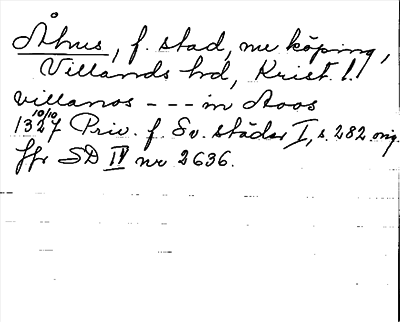 Åhus, f. stad, nu köping,
Villands hd, Krist. l.
villanos --- in Aoos
10/10
1327 Priv. f. Sv. städer I, s. 282 orig.
Jfr SD IV nr 2636.